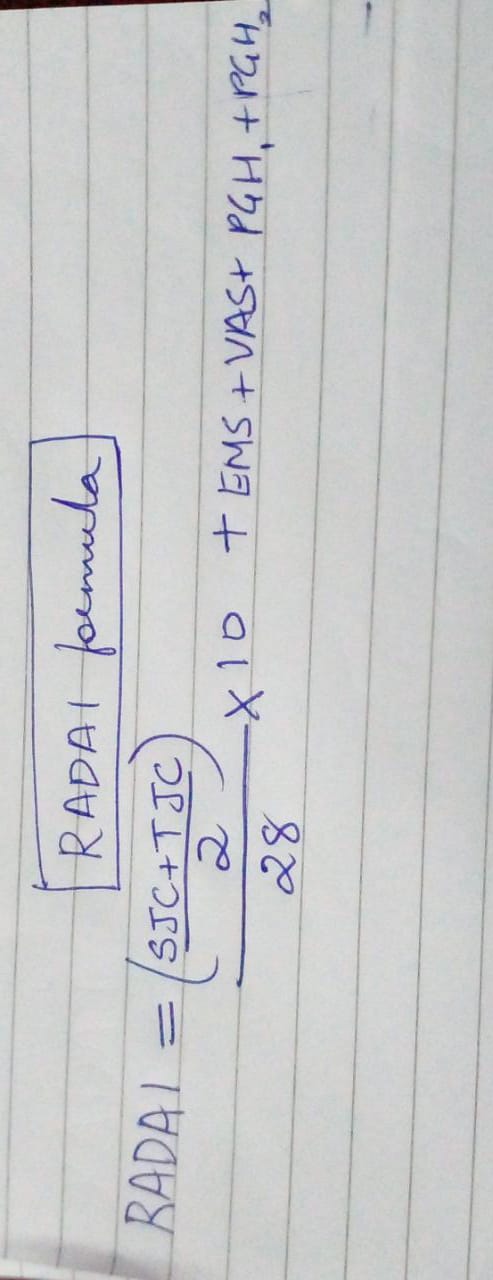 RADAI formula
RADAI = (SJC+TJC)
2
28
X 10 + EMS + VAS + PGH₁ + PGH₂